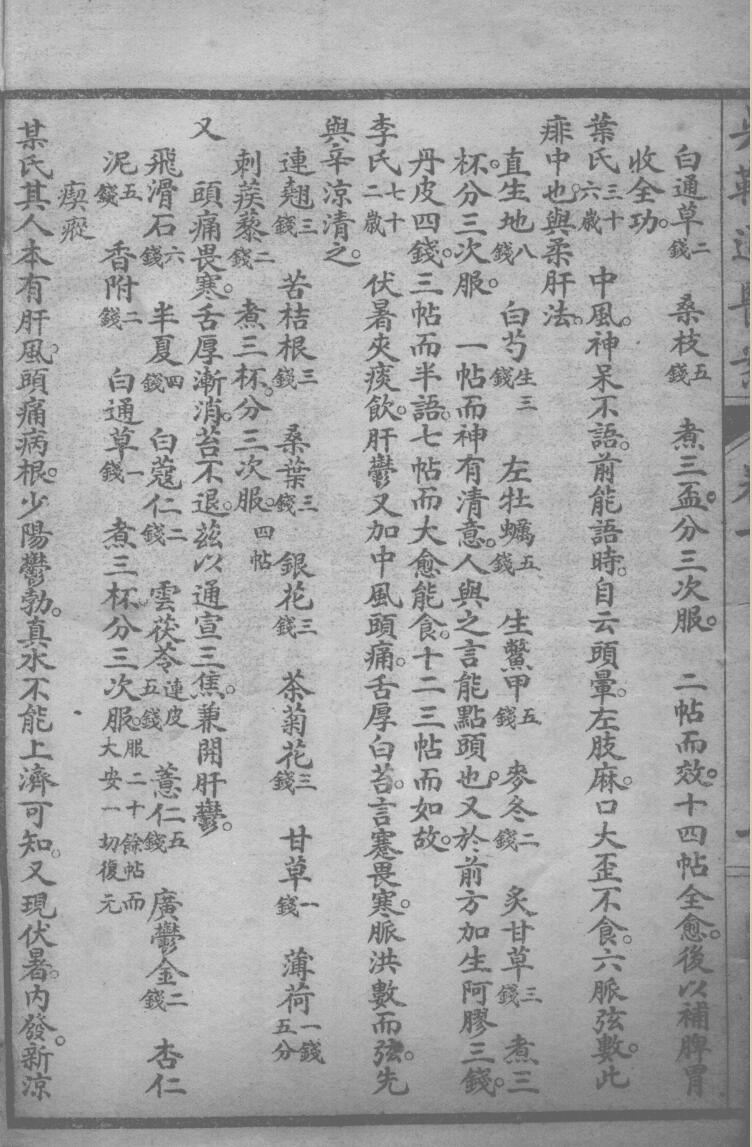 白通草二錢　桑枝五錢　煮三盃。分三次服。　二帖而效。十四帖全愈。後以補脾胃
收全功。
葉氏三十六歲　中風。神呆不語。前能語時。自云頭暈。左肢麻。口大歪。不食。六脈弦數。此
痱中也。與柔肝法。
直生地八錢　白芍生三錢　左牡蠣五錢　生鱉甲五錢　麥冬二錢　炙甘草三錢　煮三
杯。分三次服。　一帖而神有清意。人與之言能點頭也。又於前方加生阿膠三錢。
丹皮四錢。三帖而半語。七帖而大愈能食。十二三帖而如故。
李氏七十二歲　伏暑夾痰飲。肝鬱又加中風頭痛。舌厚白苔。言蹇畏寒。脈洪數而弦。先
與辛涼清之。
連翹三錢　苦桔根三錢　桑葉三錢　銀花三錢　茶菊花三錢　甘草一錢　薄荷一錢五分
刺蒺藜二錢　煮三杯。分三次服。四帖
又　頭痛畏寒。舌厚漸消。苔不退。茲以通宣三焦。兼開肝鬱。
飛滑石六錢　半夏四錢　白蔻仁二錢　雲茯苓連皮五錢　薏仁五錢　廣鬱金二錢　杏仁
泥五錢　香附二錢　白通草一錢　煮三杯分三次服。服二十餘帖而大安一切復元
瘈瘲
某氏其人本有肝風。頭痛病根。少陽鬱勃。真水不能上濟可知。又現伏暑。內發新涼